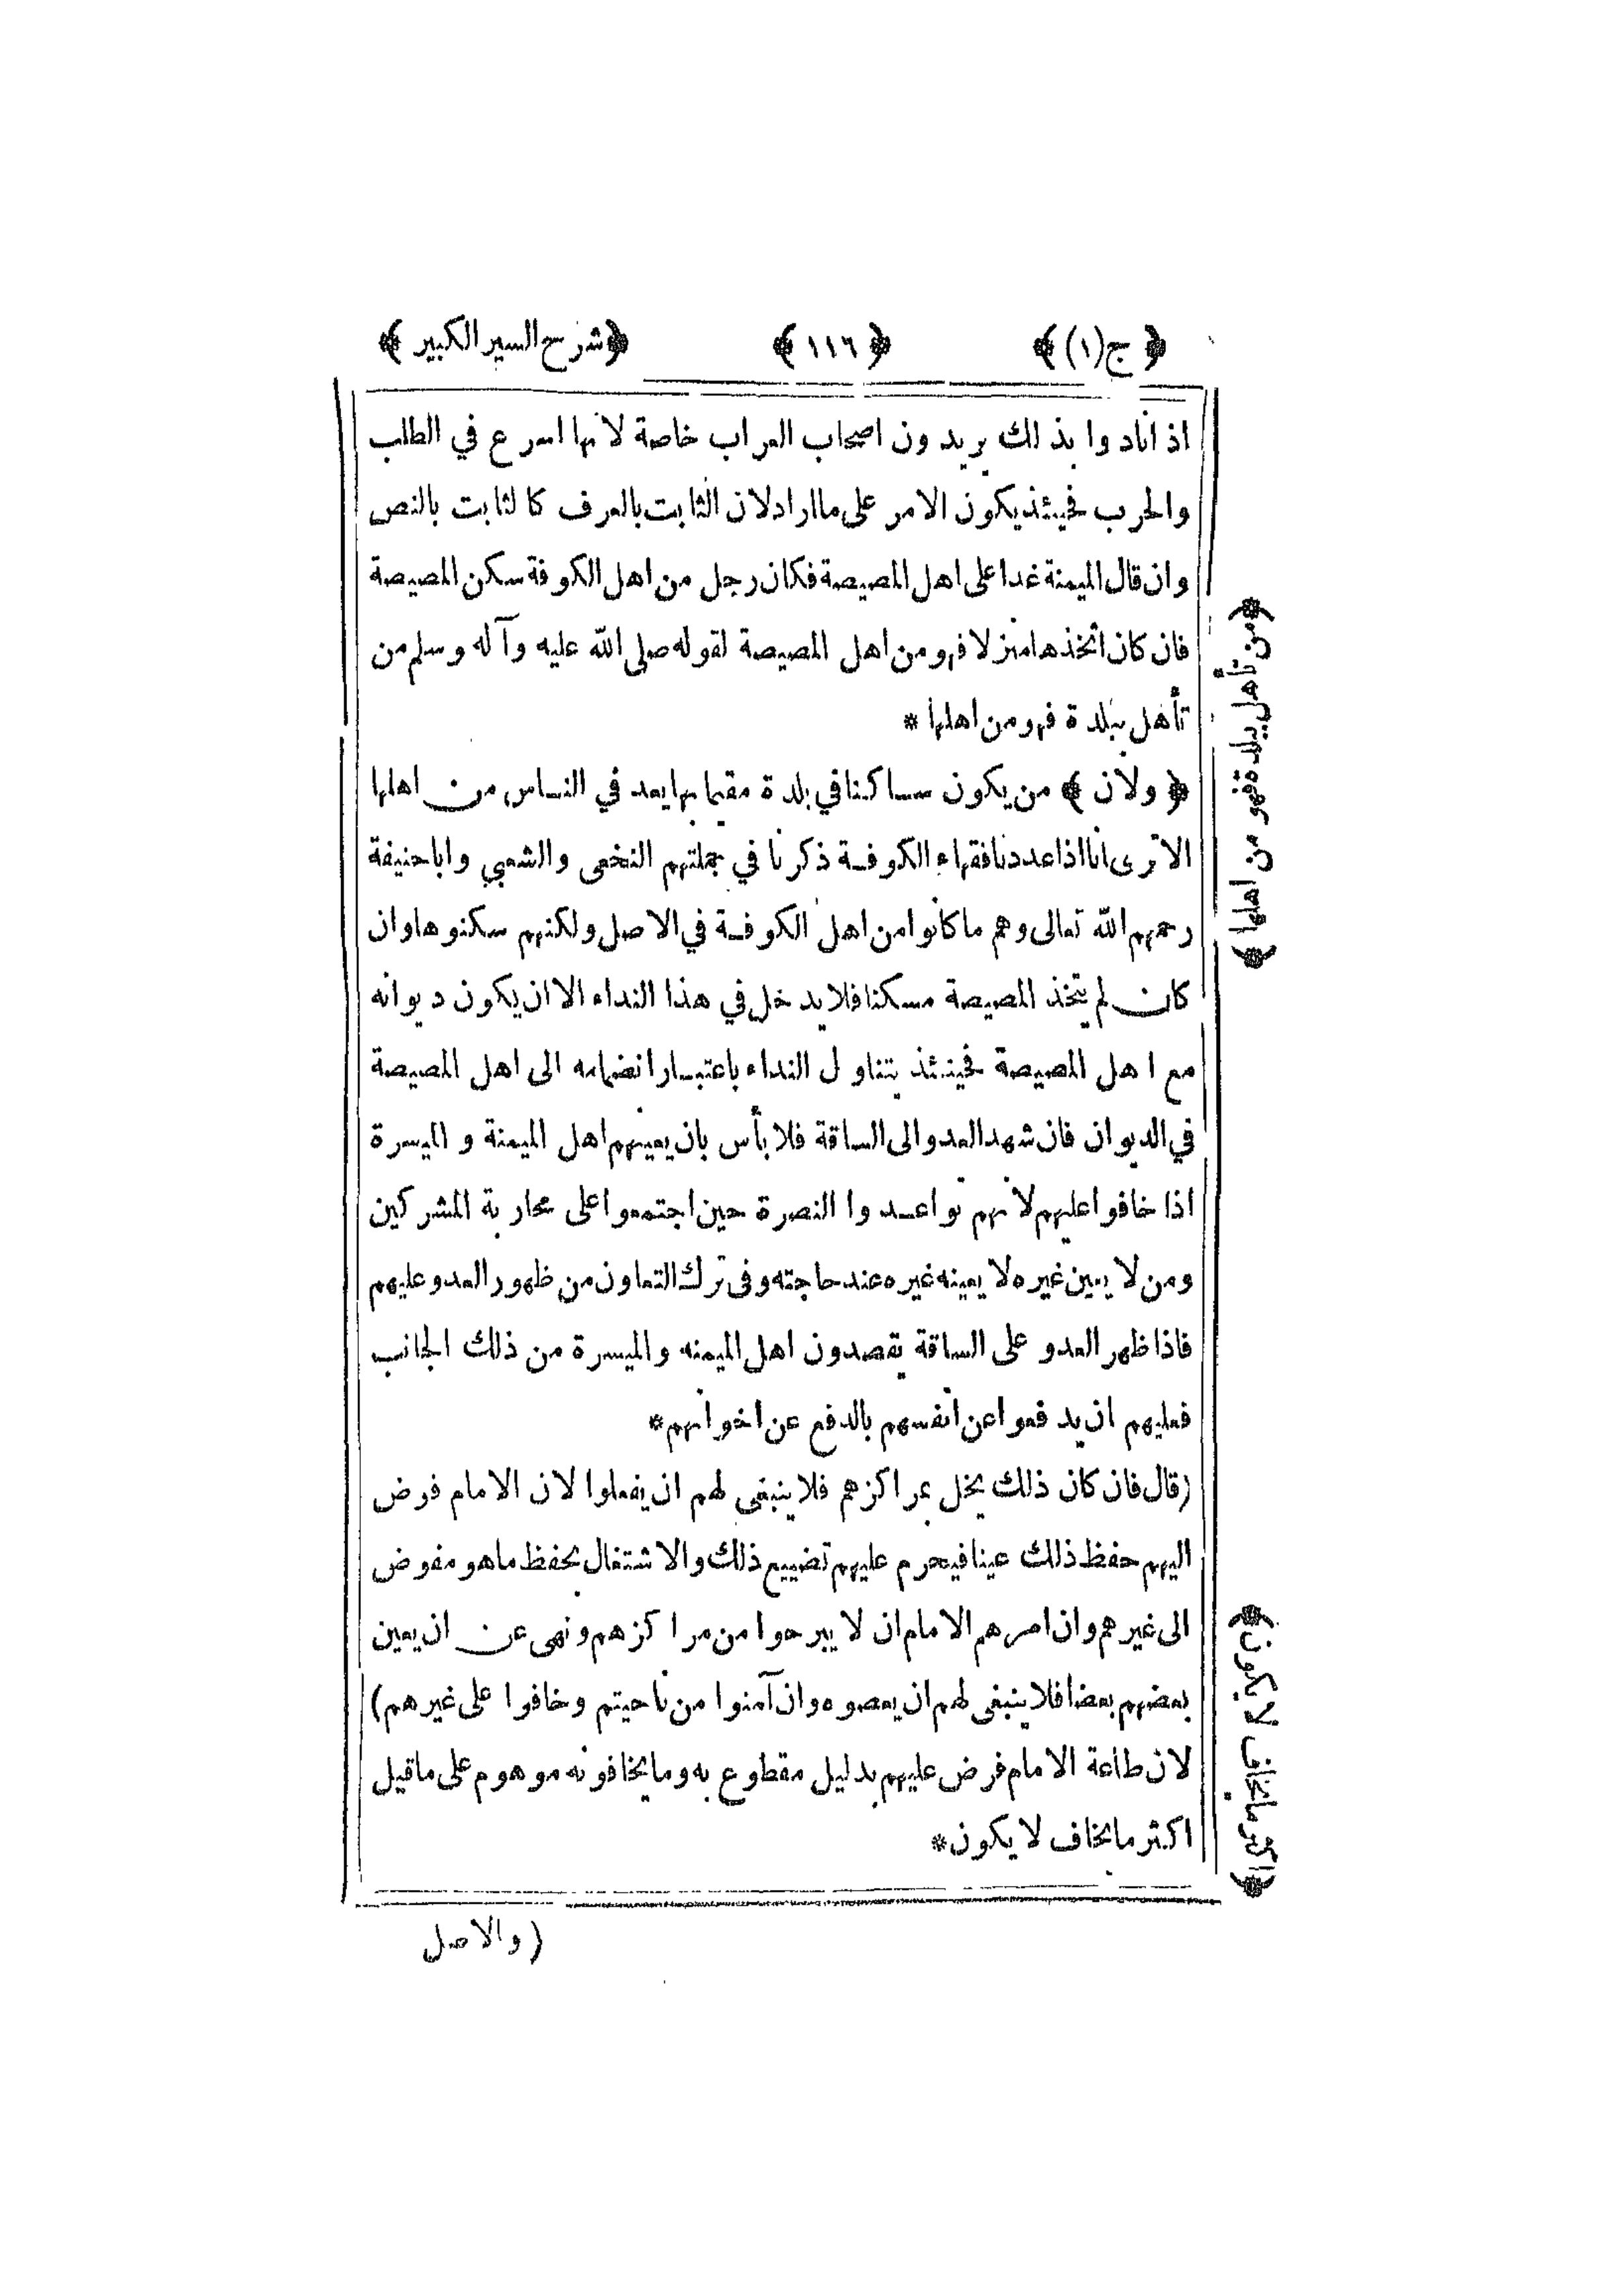 ﴿ ج(١) ﴾ ﴿ ١١٦ ﴾ ﴿شرح السير الكبير ﴾
اذا نادوا بذلك يريدون اصحاب العراب خاصة لانها اسرع في الطلب
والحرب فحينئذ يكون الامر على ما اراد لان الثابت بالعرف كالثابت بالنص
وان قال الميمنة غدا على اهل المصيصة فكان رجل من اهل الكوفة سكن المصيصة
فان كان اتخذها منزلا فهو من اهل المصيصة لقوله صلى الله عليه وآله وسلم من
تأهل ببلدة فهو من اهلها *
﴿ ولان ﴾ من يكون ساكنا في بلدة مقيما بها يعد في الناس من اهلها
الا ترى انا اذا عددنا فقهاء الكوفة ذكرنا في جملتهم النخعى والشعبي وابا حنيفة
رحمهم الله تعالى وهم ما كانوا من اهل الكوفة في الاصل ولكنهم سكنوها وان
كان لم يتخذ المصيصة مسكنا فلا يدخل في هذا النداء الا ان يكون ديوانه
مع اهل المصيصة فحينئذ يتناول النداء باعتبار انضمامه الى اهل المصيصة
في الديوان فان شهد العدو الى الساقة فلا بأس بان يعينهم اهل الميمنة و الميسرة
اذا خافوا عليهم لانهم تواعدوا النصرة حين اجتمعوا على محاربة المشركين
ومن لا يعين غيره لا يعينه غيره عند حاجته وفى ترك التعاون من ظهور العدو عليهم
فاذا ظهر العدو على الساقة يقصدون اهل الميمنه والميسرة من ذلك الجانب
فعليهم ان يدفعوا عن انفسهم بالدفع عن اخوانهم *
(قال فان كان ذلك يخل بمراكزهم فلا ينبغى لهم ان يفعلوا لان الامام فرض
اليهم حفظ ذلك عينا فيحرم عليهم تضييع ذلك والاشتغال بحفظ ما هو مفوض
الى غيرهم وان امرهم الامام ان لا يبرحوا من مراكزهم ونهى عن ان يعين
بعضهم بعضا فلا ينبغى لهم ان يعصوه وان آمنوا من ناحيتم وخافوا على غيرهم)
لان طاعة الامام فرض عليهم بدليل مقطوع به وما يخافونه موهوم على ما قيل
اكثر ما يخاف لا يكون *
(والاصل
﴿من تأهل ببلدة فهو من اهلها﴾
﴿اكثر ما يخاف لا يكون﴾